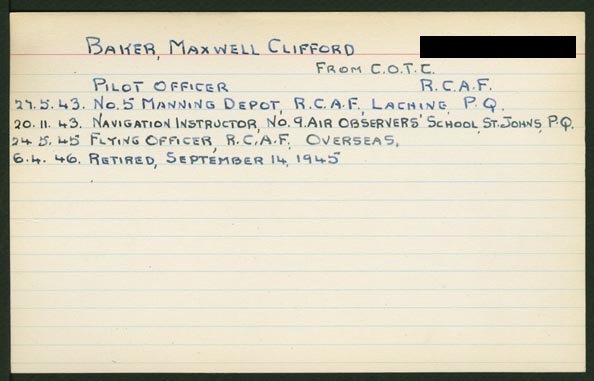 BAKER, MAXWELL CLIFFORD
FROM C.O.T.C.
PILOT OFFICER R.C.A.F.
27.5.43. NO.5 MANNING DEPOT, R.C.A.F., LACHINE, P.Q.
20.11.43. NAVIGATION INSTRUCTOR, NO.9.AIR OBSERVERS' SCHOOL, ST. JOHNS, P.Q.
24.5.45 FLYING OFFICER, R.C.A.F. OVERSEAS,
6.4.46. RETIRED, SEPTEMBER 14, 1945